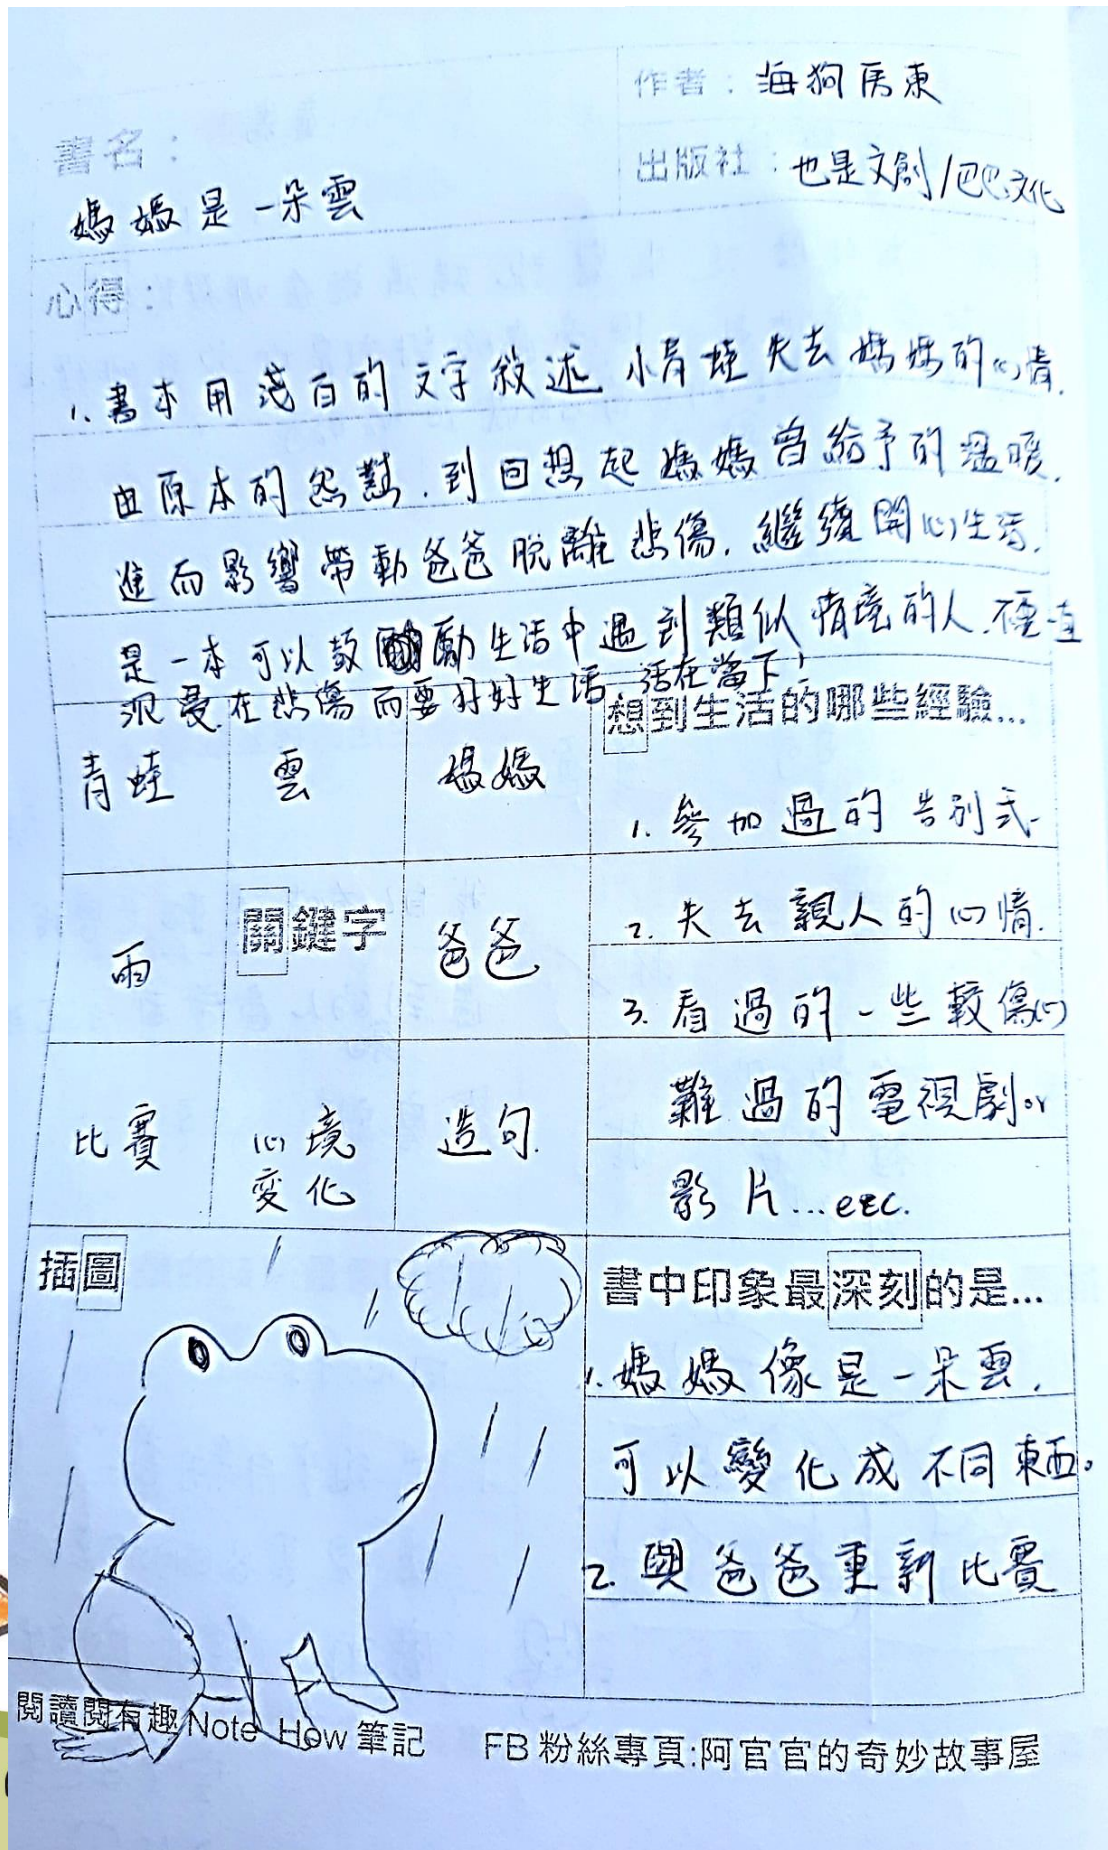 書名：
媽媽是一朵雲
作者：海狗房東
出版社：也是文創/巴巴文化
心得：
1. 書本用淺白的文字敘述 小青蛙失去媽媽的心情,
由原本的怨懟,到回想起媽媽曾給予的溫暖,
進而影響帶動爸爸脫離悲傷,繼續開心生活,
是一本可以鼓勵生活中遇到類似情境的人,不要一直
沉浸在悲傷而要好好生活 活在當下!
青蛙
雲
媽媽
雨
關鍵字
爸爸
比賽
心境
變化
造句.
想到生活的哪些經驗...
1. 參加過的告別式.
2. 失去親人的心情.
3. 看過的一些較傷心
難過的電視劇or
影片...etc.
插圖
書中印象最深刻的是...
1. 媽媽像是一朵雲,
可以變化成不同東西。
2. 與爸爸重新比賽
閱讀閱有趣 Note How 筆記
FB 粉絲專頁:阿官官的奇妙故事屋